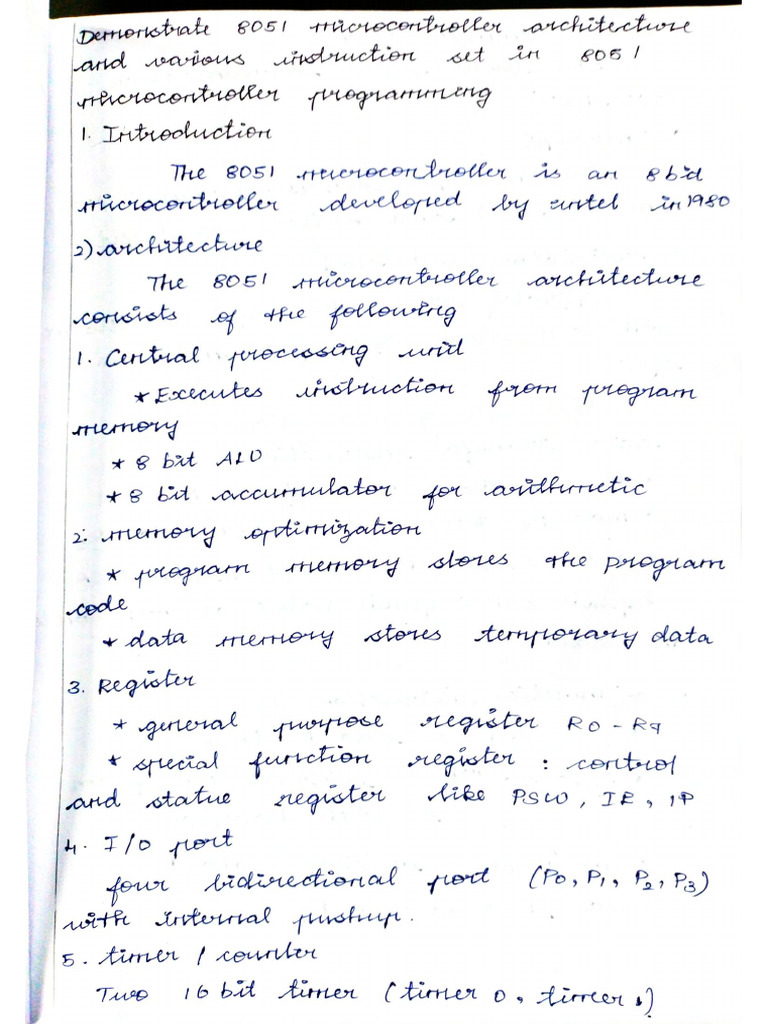 Demonstrate 8051 microcontroller architecture
and various instruction set in 8051
microcontroller programming
1. Introduction
The 8051 microcontroller is an 8 bit
microcontroller developed by intel in 1980
2) architecture
The 8051 microcontroller architecture
consists of the following
1. Central processing unit
* Executes instruction from program
memory
* 8 bit ALU
* 8 bit accumulator for arithmetic
2. memory optimization
* program memory stores the program
code
* data memory stores temporary data
3. Register
* general purpose register R0 - R7
* special function register : control
and statue register like PSW, IE, IP
4. I/O port
four bidirectional port (P0, P1, P2, P3)
with internal pushup.
5. timer / counter
Two 16 bit timer (timer 0, timer 1)